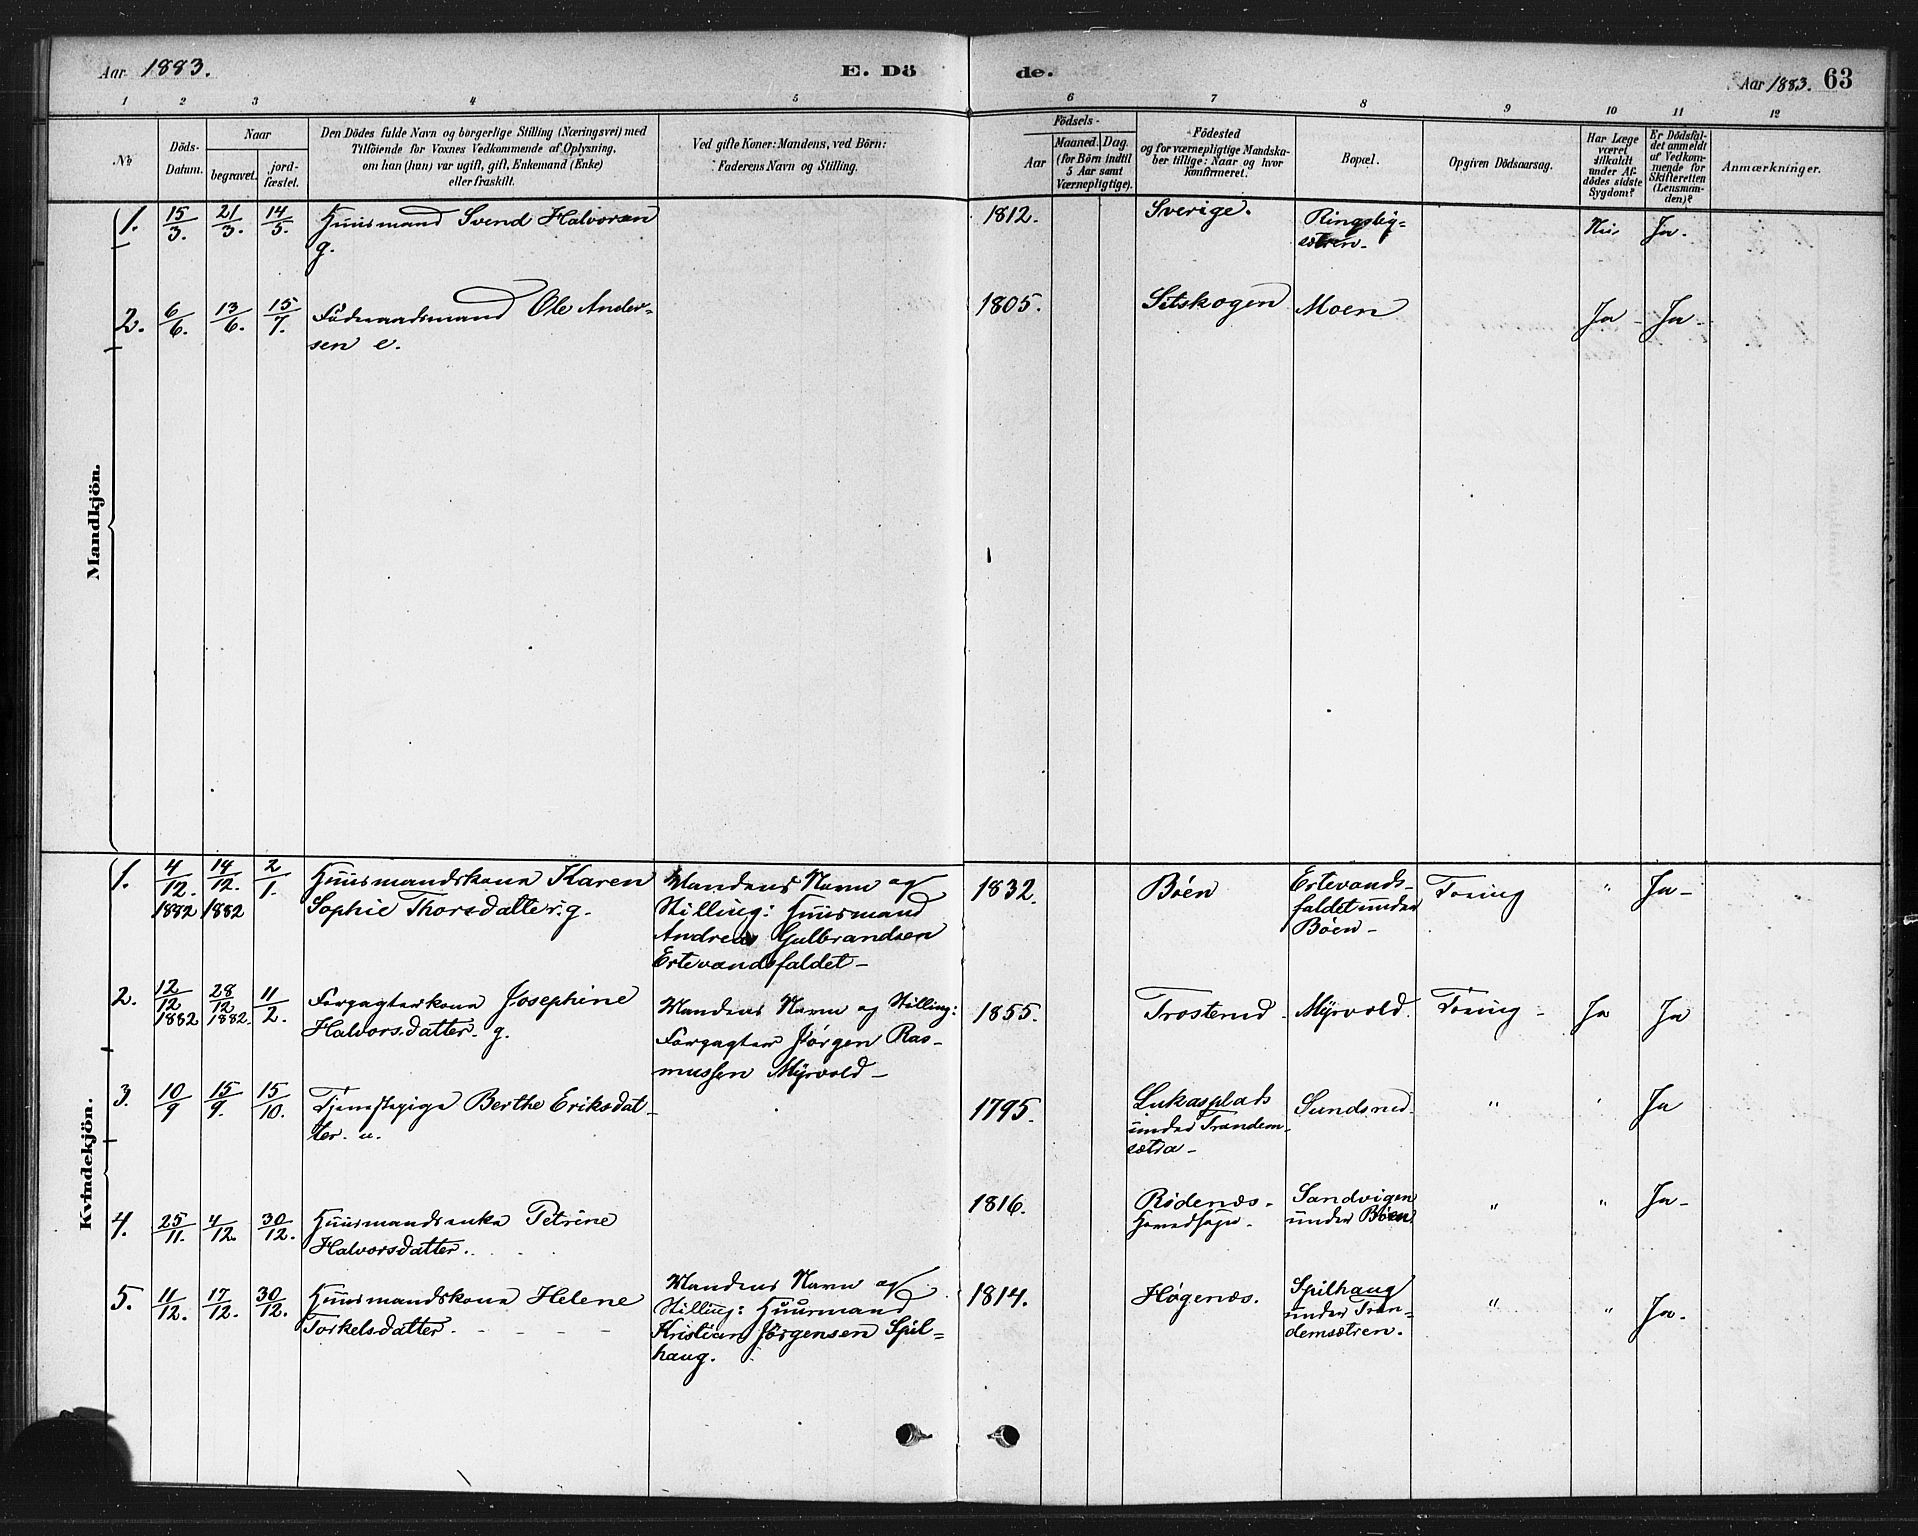 Aar 1883.
E. Dö
de.
Aar 1883. 63
1 2 3 4 5 6 7 8 9 10 11 12
No
Döds-
Datum.
Naar
begravet.
jord-
fæstet.
Den Dödes fulde Navn og borgerlige Stilling (Næringsvei) med
Tilföiende for Voxnes Vedkommende af Oplysning,
om han (hun) var ugift, gift, Enkemand (Enke)
eller fraskilt.
Ved gifte Koner: Mandens, ved Börn:
Faderens Navn og Stilling.
Födsels-
Aar
Maaned.
Dag.
(for Börn indtil
5 Aar samt
Værnepligtige).
Födested
og for værnepligtige Mandska-
ber tillige: Naar og hvor
konfirmeret.
Bopæl.
Opgiven Dödsaarsag.
Har Læge
været
tilkaldt
under Af-
dödes sidste
Sygdom?
Er Dödsfal-
det anmeldt
af Vedkom-
mende for
Skifteretten
(Lensman-
den)?
Anmærkninger.
Mandkjön.
1. 15/3. 21/3. 14/5. Huusmand Svend Halvorsen
g.
1812. Sverige. Ringsby-
sætren. Nei, Ja.
2. 6/6. 13/6. 15/7. Föderaadsmand Ole Ander-
sen e.
1805. Setskogen Moen Ja - Ja -
Kvindekjön.
1. 4/12. 1882 14/12. 1882 2/1. Huusmandskone Karen
Sophie Thorsdatter. g.
Mandens Navn og
Stilling: Huusmand
Andreas Gulbrandsen
Ertevandsfaldet -
1832. Böen Ertevands-
faldet under
Böen - Tæring " Ja -
2. 12/12 1882 28/12 1882. 11/2. Forpagterkone Josephine
Halvorsdatter. g.
Mandens Navn og Stilling:
Forpagter Jörgen Ras-
mussen Myrvold -
1855. Trosterud - Myrvold. Tæring - Ja Ja
3. 10/9 15/9. 15/10. Tjenestepige Berthe Eriksdat-
ter. u.
1795. Lukasplads
under Trandem-
sætra - Sundsrud. " " Ja
4. 25/11. 4/12. 30/12. Huusmandsenke Petrine
Halvorsdatter.
1816. Rødenæs -
Hovedsogn. Sandvigen
under Böen " " Ja -
5. 11/12. 17/12. 30/12. Huusmandskone Helene
Torkelsdatter. - - - -
Mandens Navn og
Stilling: Huusmand
Kristian Jörgensen Spil-
haug.
1814. Høgenæs. Spilhaug
under Tran-
demsætren. " " Ja.